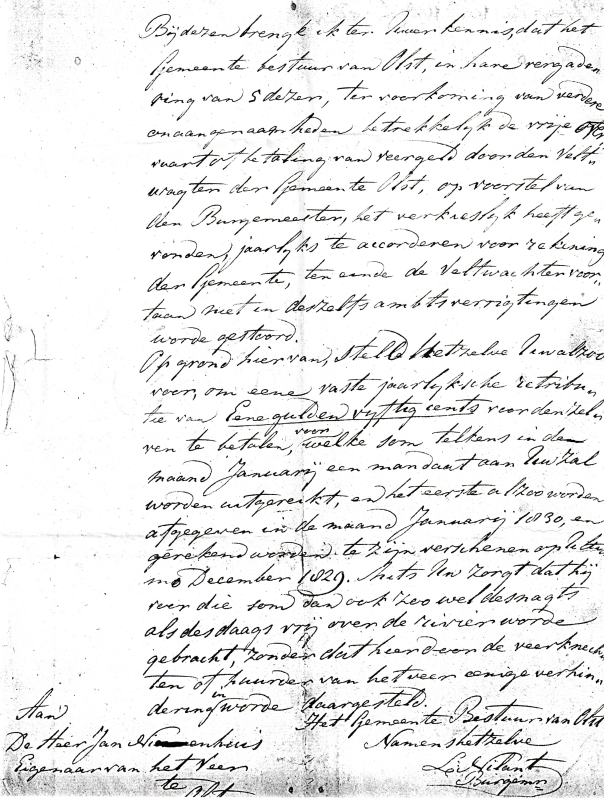 Bij dezen breng ik ter Uwer kennis, dat het
Gemeente bestuur van Olst, in hare vergade-
ring van 5 dezer, ter voorkoming van verdere
onaangenaamheden betrekkelijk de vrije over
vaart of betaling van veergeld door den Velt-
wagter der Gemeente Olst, op voorstel van
den Burgemeester, het verkieslijk heeft ge-
vonden, jaarlijks te accorderen voor rekening
der Gemeente, ten einde de Veltwachter voor-
taan niet in deszelfs ambtsverrigtingen
worde gestoord.
Op grond hiervan, stelld hetzelve Uw alzoo
voor, om eene vaste jaarlijksche retribu-
tie van Eene gulden vyftig cents voor denzel-
ven te betalen, voor welke som telkens in de
maand Januarij een mandaat aan Uw zal
worden uitgereikt, en het eerste alzoo worden
afgegeven in de maand Januarij 1830, en
gerekend worden te zijn verschenen op Ulti-
mo December 1829. Mits Uw zorgt dat hij
voor die som dan ook zoo wel desnagts
als desdaags vrij over de rivier worde
gebracht, zonder dat hierdoor de veerknech-
ten of huurder van het veer eenige verhin-
dering in worde daargesteld.
Het Gemeente Bestuur van Olst
Namens hetzelve
Burgemr.
Aan
De Heer Jan Nieuwenhuis
Eigenaar van het Veer
te
Olst